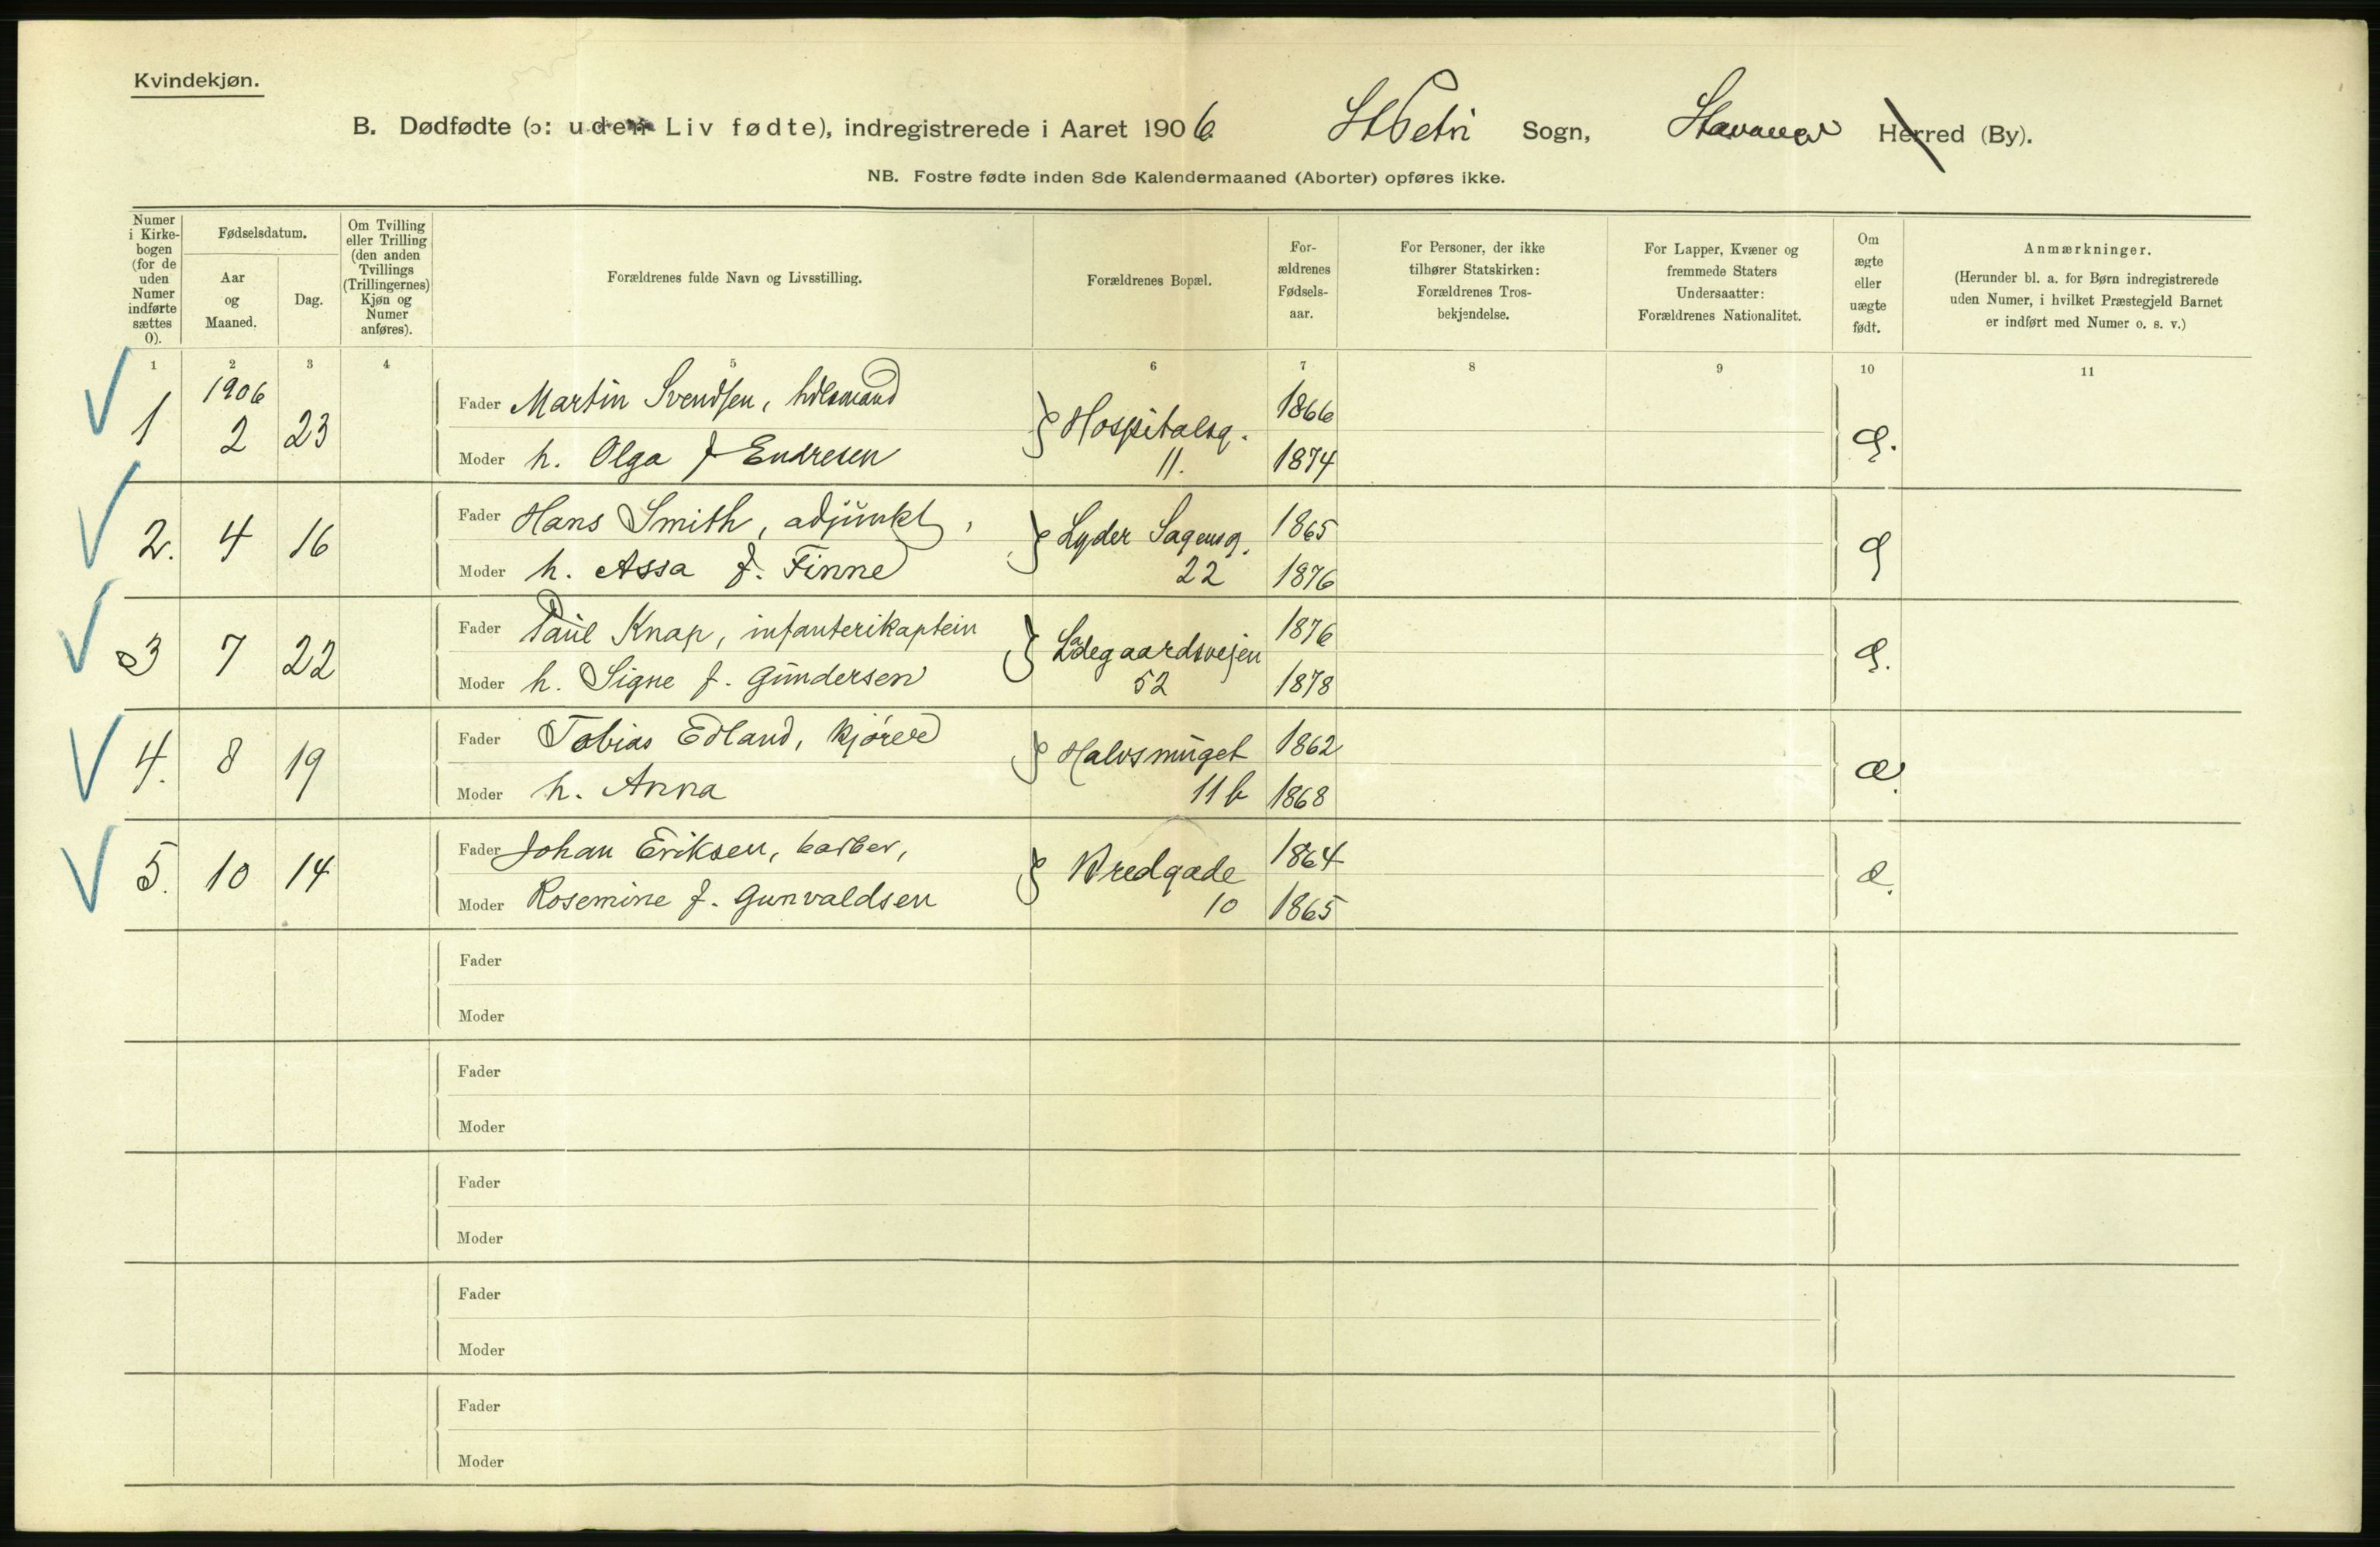 Kvindekjøn.
B. Dødfødte (ɔ: uden Liv fødte), indregistrerede i Aaret 1906. St Petri Sogn, Stavanger Herred (By).
NB. Fostre fødte inden 8de Kalendermaaned (Aborter) opføres ikke.
Numer i Kirkebogen (for de uden Numer indførte sættes 0).
Fødselsdatum.
Aar og Maaned.
Dag.
Om Tvilling eller Trilling (den anden Tvillings (Trillingernes) Kjøn og Numer anføres).
Forældrenes fulde Navn og Livsstilling.
Forældrenes Bopæl.
For-ældrenes Fødsels-aar.
For Personer, der ikke tilhører Statskirken: Forældrenes Tros-bekjendelse.
For Lapper, Kvæner og fremmede Staters Undersaatter: Forældrenes Nationalitet.
Om ægte eller uægte født.
Anmærkninger.
(Herunder bl. a. for Børn indregistrerede uden Numer, i hvilket Præstegjeld Barnet er indført med Numer o. s. v.)
1 2 3 4 5 6 7 8 9 10 11
1906
1 2 23 Fader Martin Svendsen, Hospitalsg. 1866
Moder h. Olga f Endresen 11. 1874
2. 4 16 Fader Hans Smith, adjunkt, Lyder Sagensg. 1865
Moder h. Assa f. Finne 22 1876
3 7 22 Fader Paul Knap, infanterikaptein Ladegaardsvejen 1876
Moder h. Signe f. Gundersen 52 1878
4. 8 19 Fader Tobias Edland, kjører Halvsmuget 1862 æ.
Moder h. Anna 11 b 1868
5. 10 14 Fader Johan Eriksen, barber, Bredgade 1864 æ.
Moder Rosemine f. Gunvaldsen 10 1865
Fader
Moder
Fader
Moder
Fader
Moder
Fader
Moder
Fader
Moder